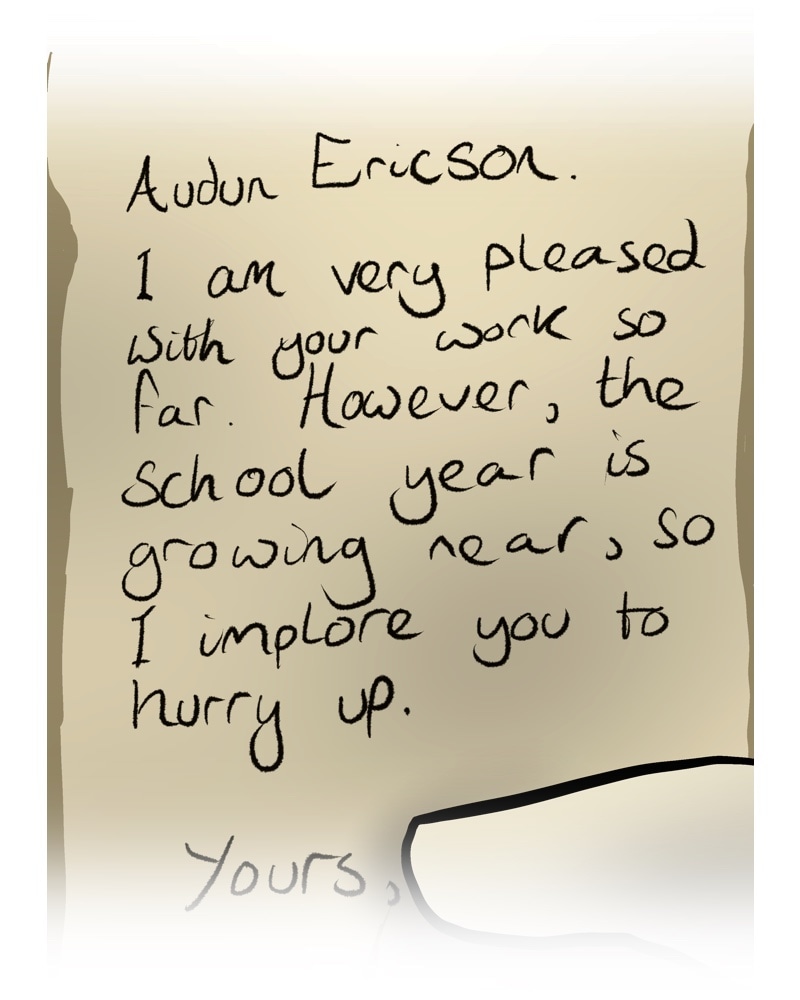 Audun Ericson.
I am very pleased
with your work so
far. However, the
school year is
growing near, so
I implore you to
hurry up.
Yours,